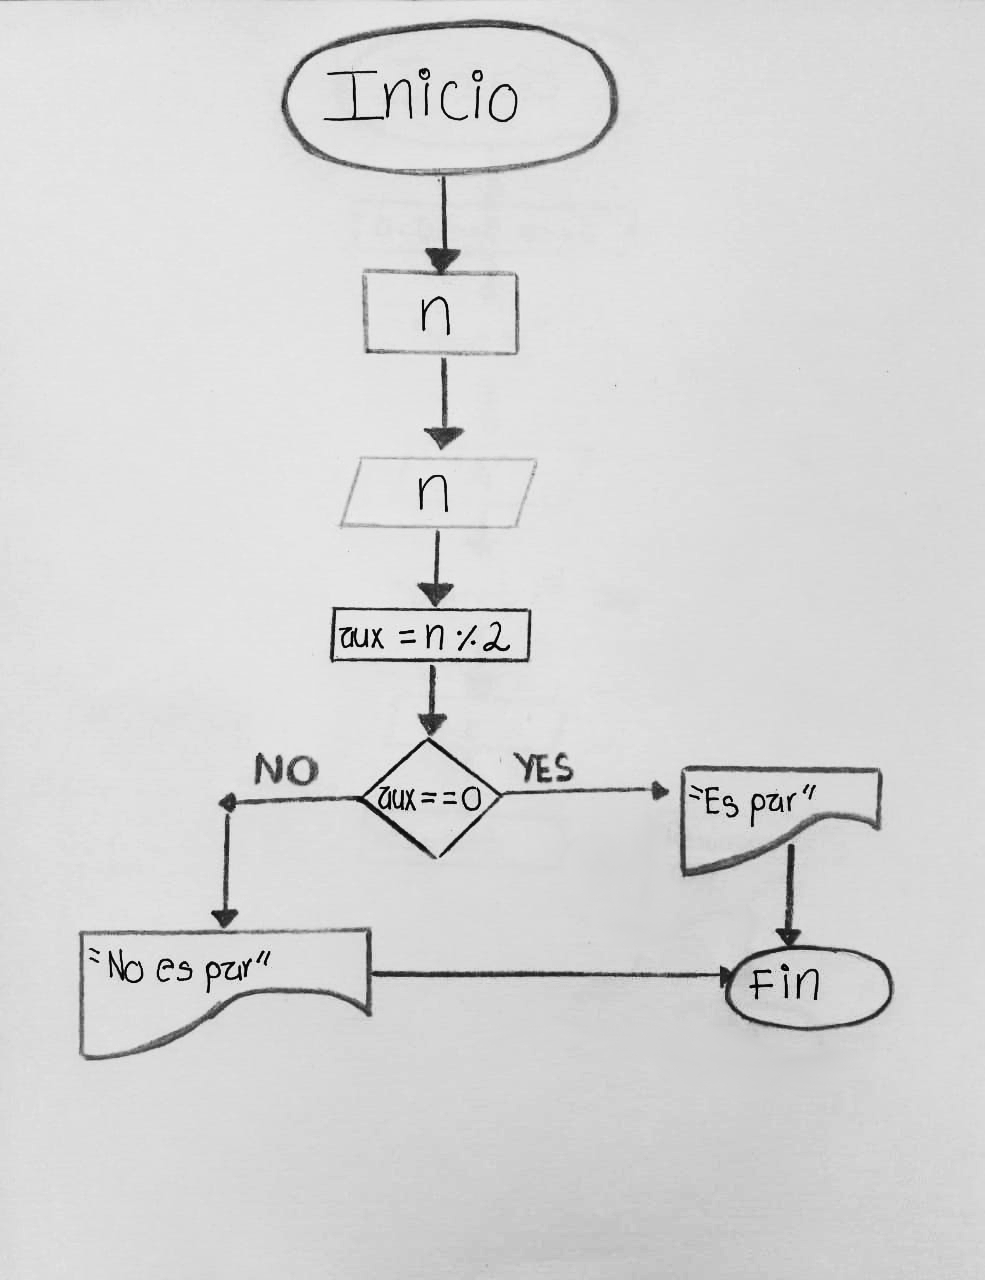 Inicio
n
n
aux = n % 2
NO
YES
aux==0
"Es par"
"No es par"
Fin